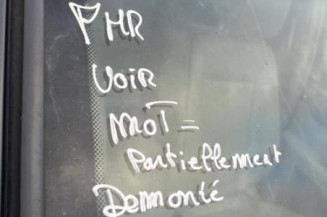 PHR
VOIR
MOT =
Partiellement
Demonté